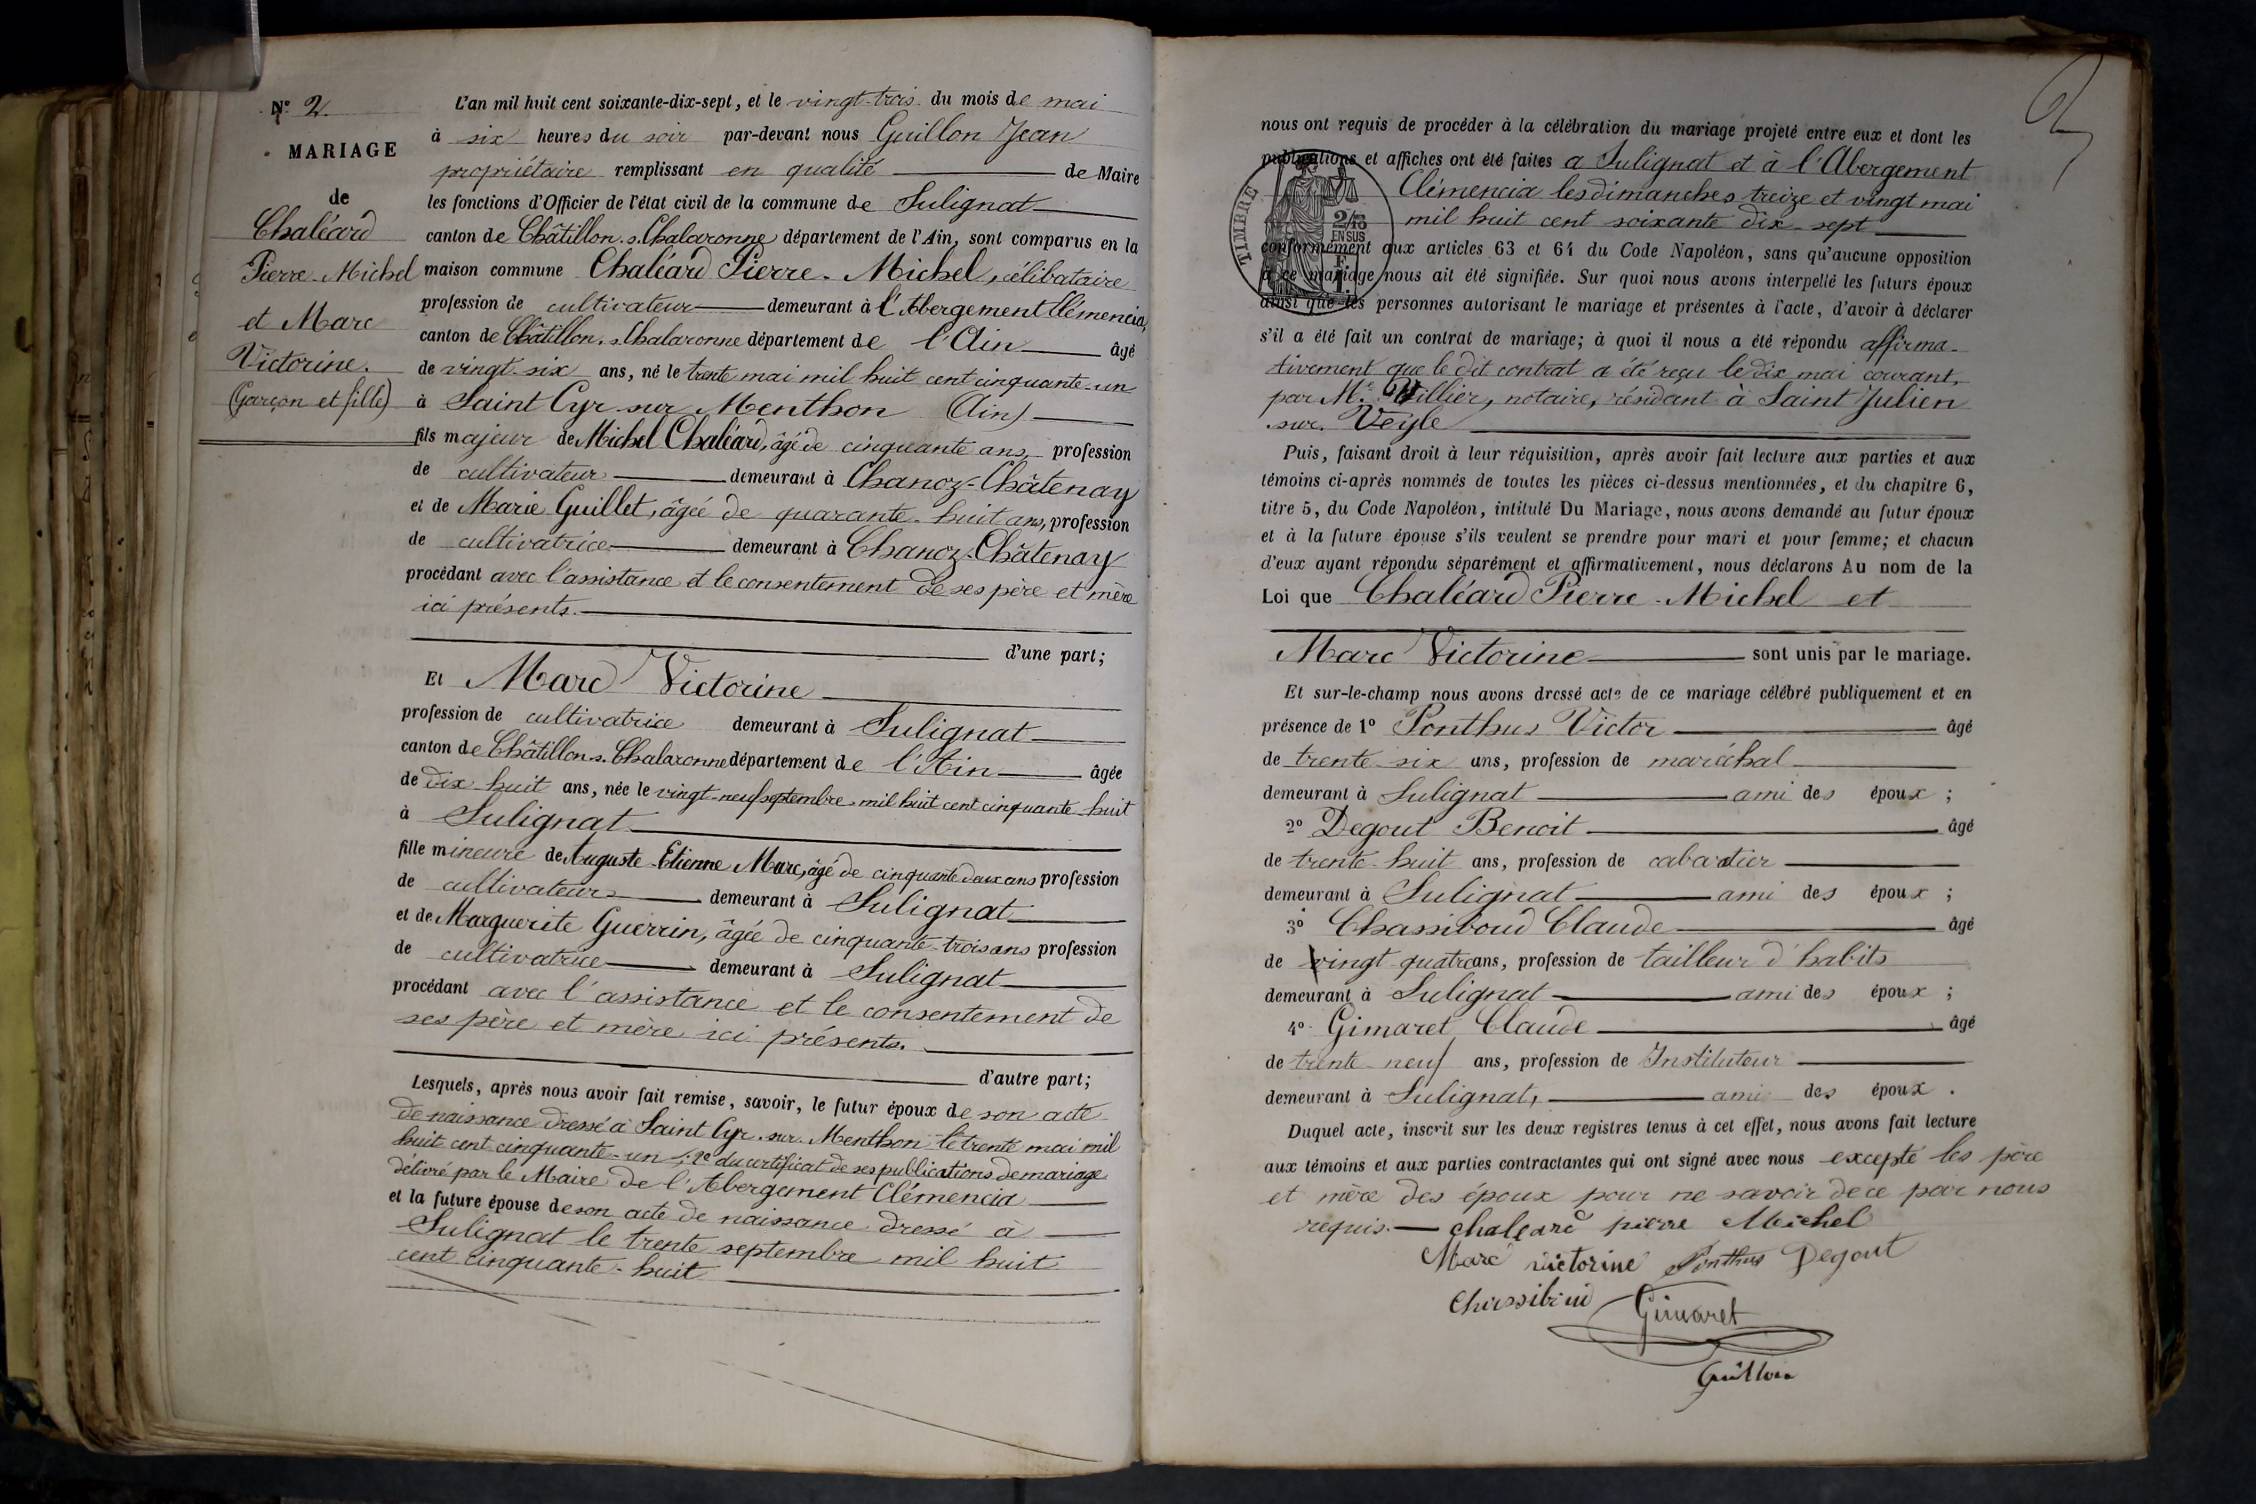 N° 2.
MARIAGE
de
Chaléard
Pierre-Michel
et Marc
Victorine.
(Garçon et fille)
L'an mil huit cent soixante-dix-sept, et le vingt-trois du mois de mai
à six heures du soir par-devant nous Guillon Jean
propriétaire remplissant en qualité de Maire
les fonctions d'Officier de l'état civil de la commune de Sulignat
canton de Châtillon-s.-Chalaronne département de l'Ain, sont comparus en la
maison commune Chaléard Pierre-Michel, célibataire
profession de cultivateur demeurant à l'Abergement Clémencia,
canton de Châtillon-s.-Chalaronne département de l'Ain âgé
de vingt-six ans, né le trente mai mil huit cent cinquante-un
à Saint Cyr-sur-Menthon (Ain)
fils majeur de Michel Chaléard, âgé de cinquante ans, profession
de cultivateur demeurant à Chanoz-Châtenay
et de Marie Guillet, âgée de quarante-huit ans, profession
de cultivatrice demeurant à Chanoz-Châtenay
procédant avec l'assistance et le consentement de ses père et mère
ici présents.
d'une part;
Et Marc Victorine
profession de cultivatrice demeurant à Sulignat
canton de Châtillon-s.-Chalaronne département de l'Ain âgée
de dix huit ans, née le vingt-neuf septembre mil huit cent cinquante-huit
à Sulignat
fille mineure de Auguste-Etienne Marc, âgé de cinquante deux ans profession
de cultivateur demeurant à Sulignat
et de Marguerite Guerrin, âgée de cinquante-trois ans profession
de cultivatrice demeurant à Sulignat
procédant avec l'assistance et le consentement de
ses père et mère ici présents.
d'autre part;
Lesquels, après nous avoir fait remise, savoir, le futur époux de son acte
de naissance dressé à Saint Cyr-sur-Menthon le trente mai mil
huit cent cinquante-un; 2° du certificat de ses publications de mariage
délivré par le Maire de l'Abergement Clémencia
et la future épouse de son acte de naissance dressé à
Sulignat le trente septembre mil huit
cent cinquante-huit
nous ont requis de procéder à la célébration du mariage projeté entre eux et dont les
publications et affiches ont été faites à Sulignat et à l'Abergement
Clémencia les dimanches treize et vingt mai
mil huit cent soixante dix-sept
TIMBRE
2/10
EN SUS
conformément aux articles 63 et 64 du Code Napoléon, sans qu'aucune opposition
à ce mariage nous ait été signifiée. Sur quoi nous avons interpellé les futurs époux
ainsi que les personnes autorisant le mariage et présentes à l'acte, d'avoir à déclarer
s'il a été fait un contrat de mariage; à quoi il nous a été répondu affirma-
tivement que le dit contrat a été reçu le dix mai courant,
par Me Villier, notaire, résidant à Saint Julien
sur Veyle
Puis, faisant droit à leur réquisition, après avoir fait lecture aux parties et aux
témoins ci-après nommés de toutes les pièces ci-dessus mentionnées, et du chapitre 6,
titre 5, du Code Napoléon, intitulé Du Mariage, nous avons demandé au futur époux
et à la future épouse s'ils veulent se prendre pour mari et pour femme; et chacun
d'eux ayant répondu séparément et affirmativement, nous déclarons Au nom de la
Loi que Chaléard Pierre-Michel et
Marc Victorine sont unis par le mariage.
Et sur-le-champ nous avons dressé acte de ce mariage célébré publiquement et en
présence de 1° Ponthus Victor âgé
de trente-six ans, profession de maréchal
demeurant à Sulignat ami des époux;
2° Degout Benoit âgé
de trente-huit ans, profession de cabaretier
demeurant à Sulignat ami des époux;
3° Chassiboud Claude âgé
de vingt quatre ans, profession de tailleur d'habits
demeurant à Sulignat ami des époux;
4° Gimaret Claude âgé
de trente-neuf ans, profession de Instituteur
demeurant à Sulignat, ami des époux.
Duquel acte, inscrit sur les deux registres tenus à cet effet, nous avons fait lecture
aux témoins et aux parties contractantes qui ont signé avec nous excepté les père
et mère des époux pour ne savoir de ce par nous
requis. chaleard pierre Michel
Marc victorine Ponthus Degout
Chassiboud Gimaret
Guillon